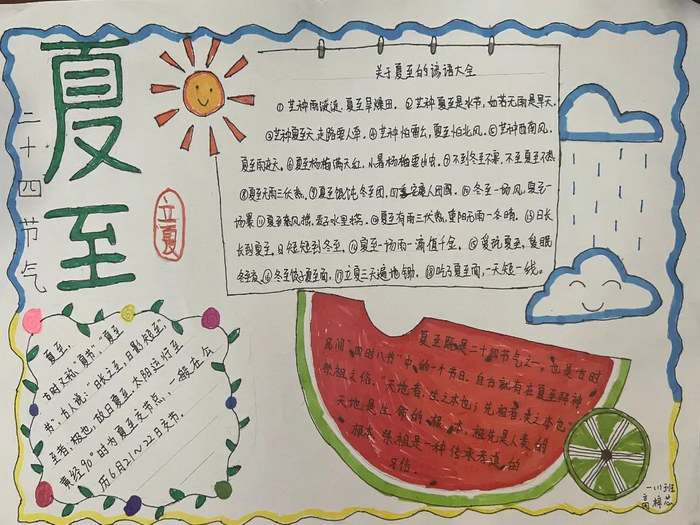 夏至
二十四节气
立夏
关于夏至的谚语大全
①芒种雨涟涟,夏至旱燥田。②芒种夏至是水节,如若无雨是旱天。
③芒种夏至天,走路要人牵。④芒种怕雷公,夏至怕北风。⑤芒种西南风,
夏至雨连天。⑥夏至杨梅满天红,小暑杨梅要出虫。⑦不到冬至不寒,不至夏至不热
⑧夏至天雨三伏热。⑨夏至馄饨冬至团,四季安康人团圆。⑩冬至一场风,夏至一
场暴⑪夏至东风摇,麦子水里捞。⑫夏至有雨三伏热,重阳无雨一冬晴。⑬日长
长到夏至,日短短到冬至。⑭夏至一场雨一滴值千金。⑮爱玩夏至,爱眠
冬至夜。⑯冬至饺子夏至面,⑰立夏三天遍地锄。⑱吃了夏至面,一天短一线。
夏至,
古时又称"夏节","夏至
节",古人说:"日长之至,日影短至
至者,极也,故日夏至,太阳运行至
黄经90°时为夏至交节点,一般在公
历6月21~22日交节。
夏至既是二十四节气之一,也是古时
民间"四时八节"中的一个节日,自古就有在夏至拜神
祭祖之俗,天地者,生之本也;先祖者,类之本也"
天地是生命的根本,祖先是人类的
根本祭祖是一种传承孝道的
习俗。
一(1)班
梓芯